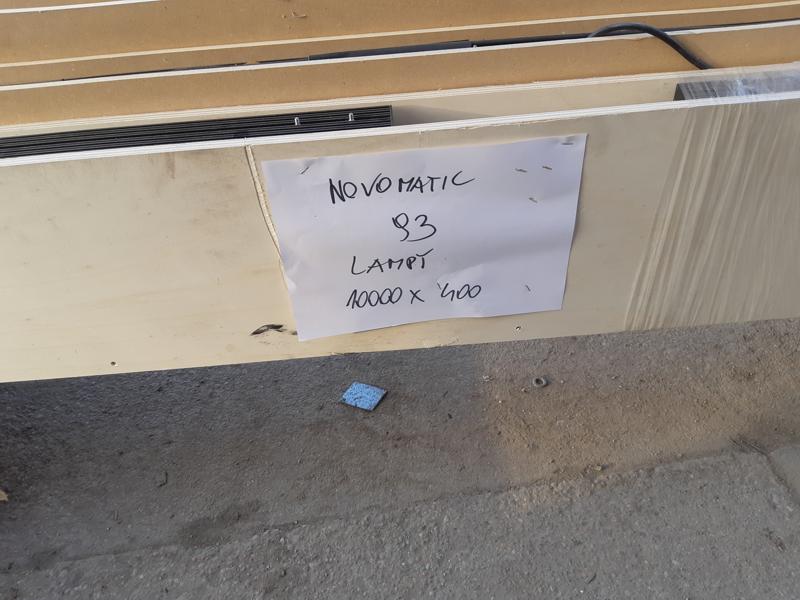 NOVOMATIC
93
LAMPY
10000 x 400